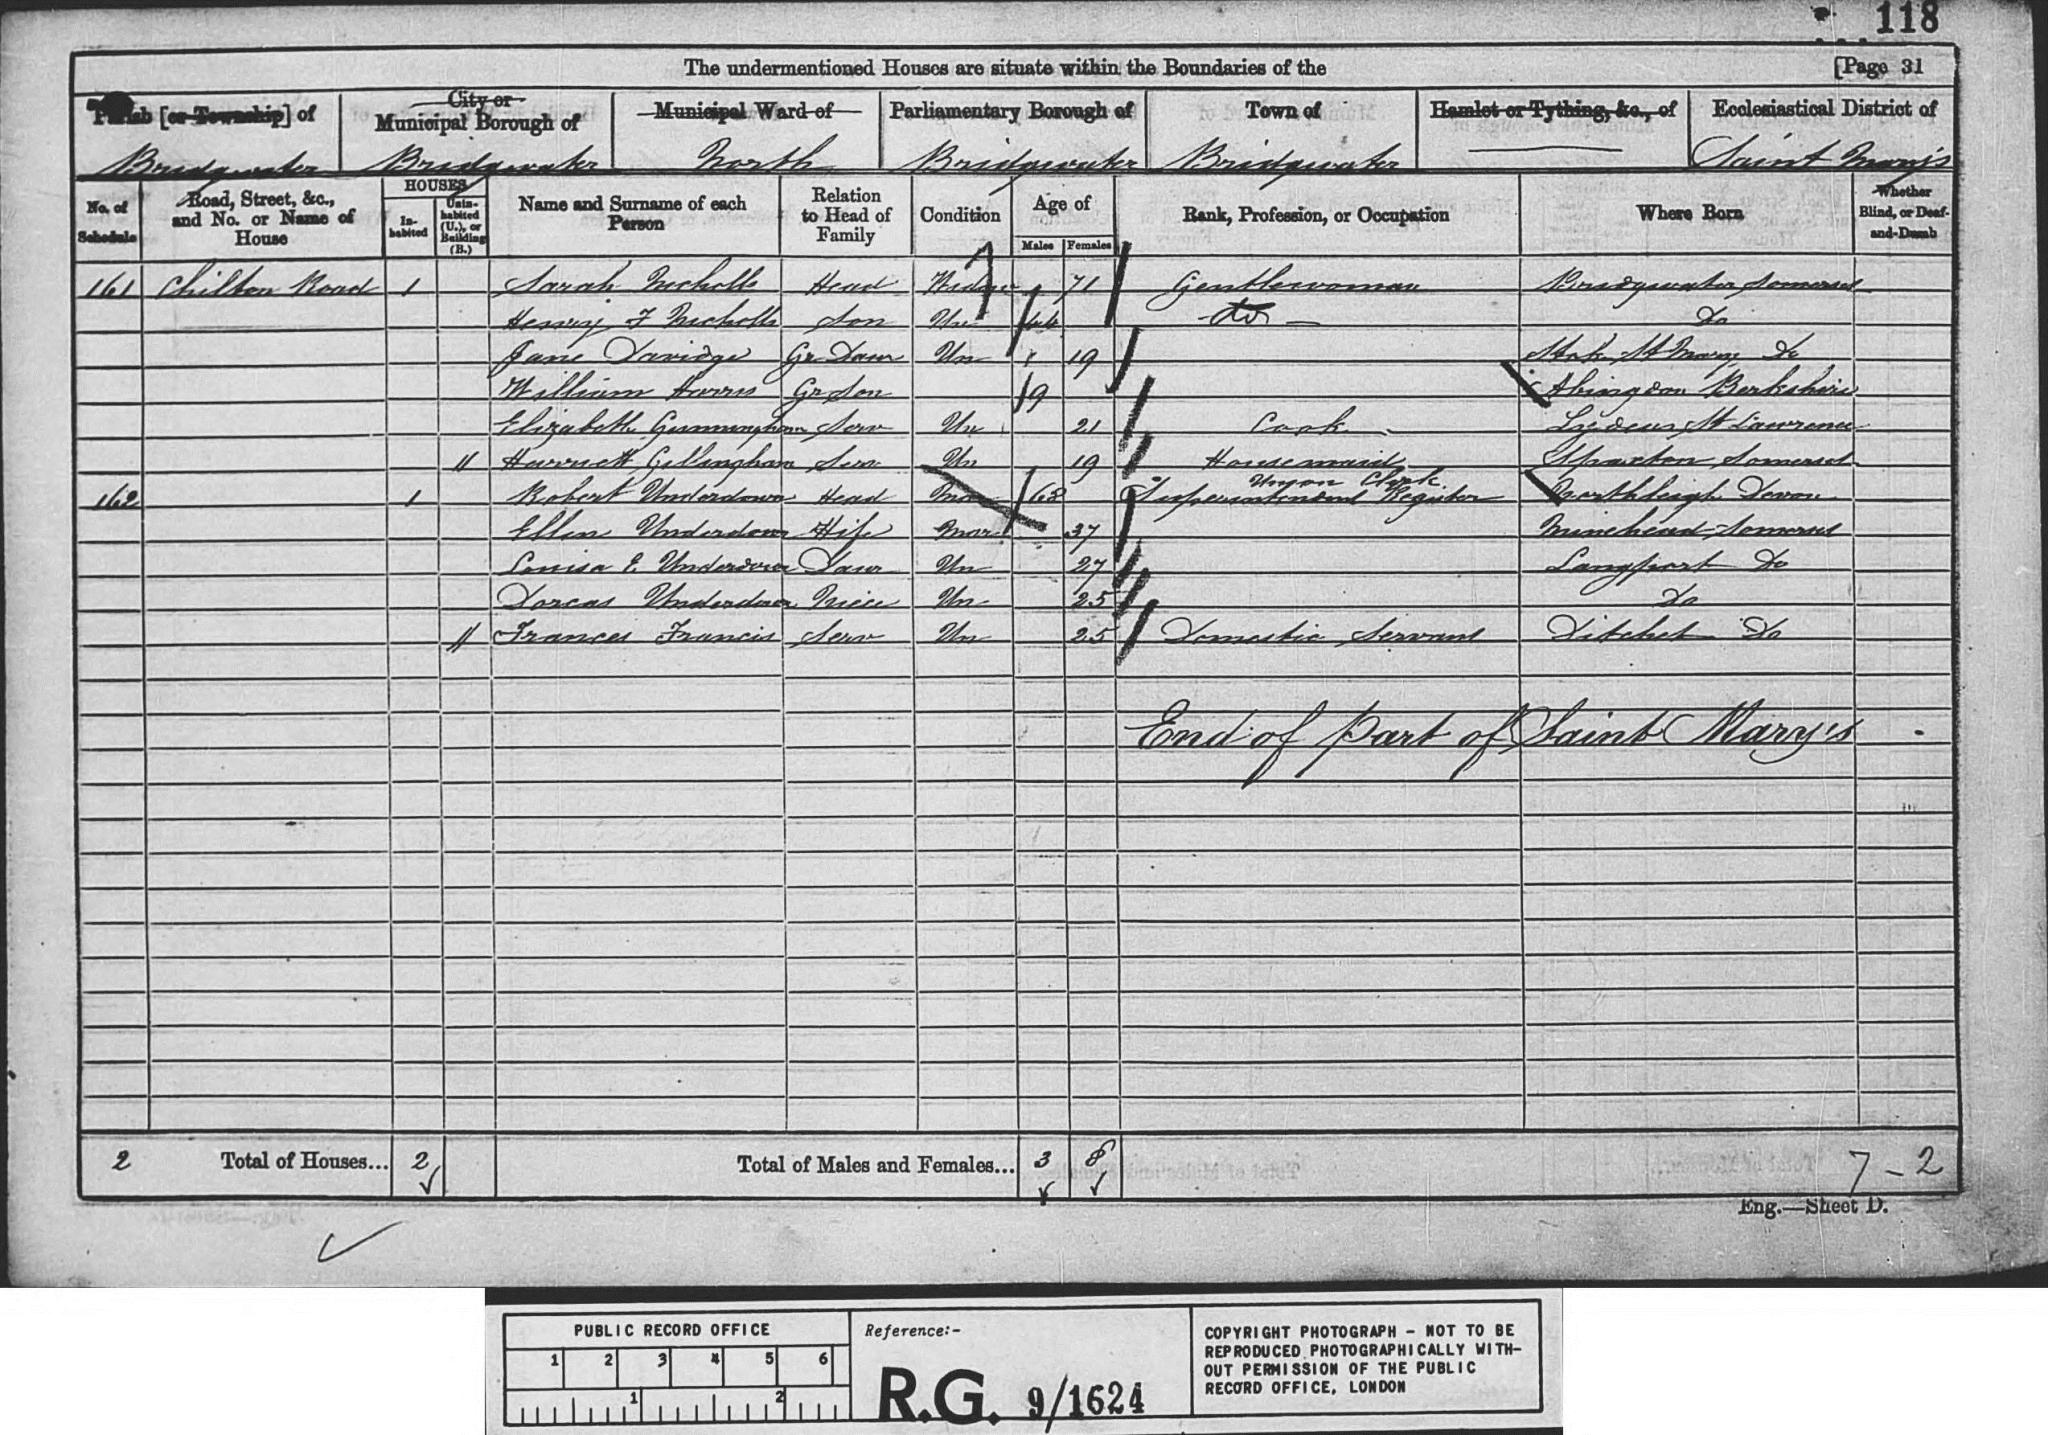 118
The undermentioned Houses are situate within the Boundaries of the
[Page 31
Parish [or Township] of
City or Municipal Borough of
Municipal Ward of
Parliamentary Borough of
Town of
Hamlet or Tything, &c., of
Ecclesiastical District of
Bridgwater Bridgwater North Bridgwater Bridgwater Saint Mary's
No. of Schedule
Road, Street, &c., and No. or Name of House
HOUSES
In-habited
Unin-habited (U.), or Building (B.)
Name and Surname of each Person
Relation to Head of Family
Condition
Age of
Males Females
Rank, Profession, or Occupation
Where Born
Whether Blind, or Deaf-and-Dumb
161 Chilton Road 1 Sarah Nicholls Head Widow 71 Gentlewoman Bridgwater Somerset
Henry F Nicholls Son Un 44 Do Do
Jane Davidge Gr Daur Un 19 Stoke St Mary Do
William Harris Gr Son 9 Abingdon Berkshire
Elizabeth Gunningham Serv Un 21 Cook Lydeard St Lawrence
Harriett Gillingham Serv Un 19 Housemaid Spaxton Somerset
Union Clerk
162 1 Robert Underdown Head Mar 62 Superintendent Register Northleigh Devon
Ellen Underdown Wife Mar 37 Minehead Somerset
Louisa E. Underdown Daur Un 27 Langport Do
Dorcas Underdown Niece Un 25 Do
Frances Francis Serv Un 25 Domestic Servant Ditchet Do
End of Part of Saint Mary's
2 Total of Houses... 2
Total of Males and Females... 3 8
7 - 2
Eng.—Sheet D.
PUBLIC RECORD OFFICE
1 2 3 4 5 6
1 2
Reference:-
R.G. 9/1624
COPYRIGHT PHOTOGRAPH - NOT TO BE
REPRODUCED PHOTOGRAPHICALLY WITH-
OUT PERMISSION OF THE PUBLIC
RECORD OFFICE, LONDON